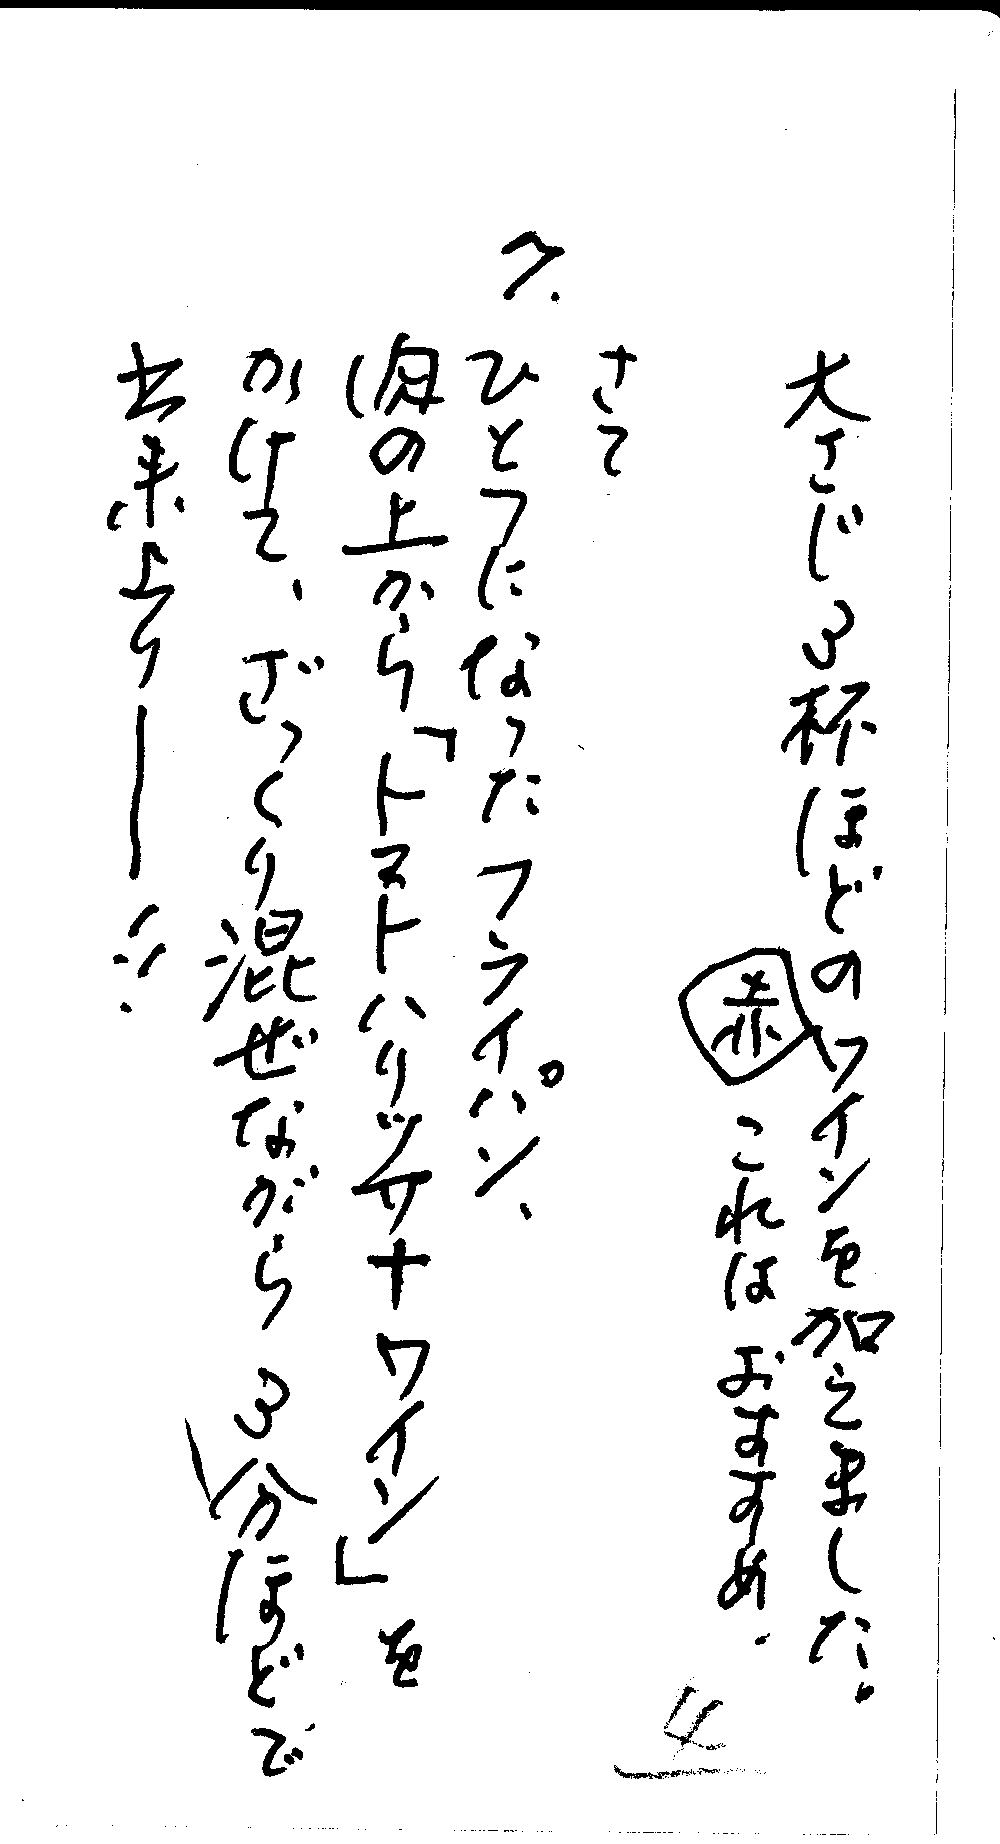 大さじ3杯ほどのワインを加えました。
赤 これはおすすめ.
さて
7.
ひとつになったフライパン、
の上から「トマトハリッサ+ワイン」を
かけて、ざっくり混ぜながら 3分ほどで
出来上りー!!
4